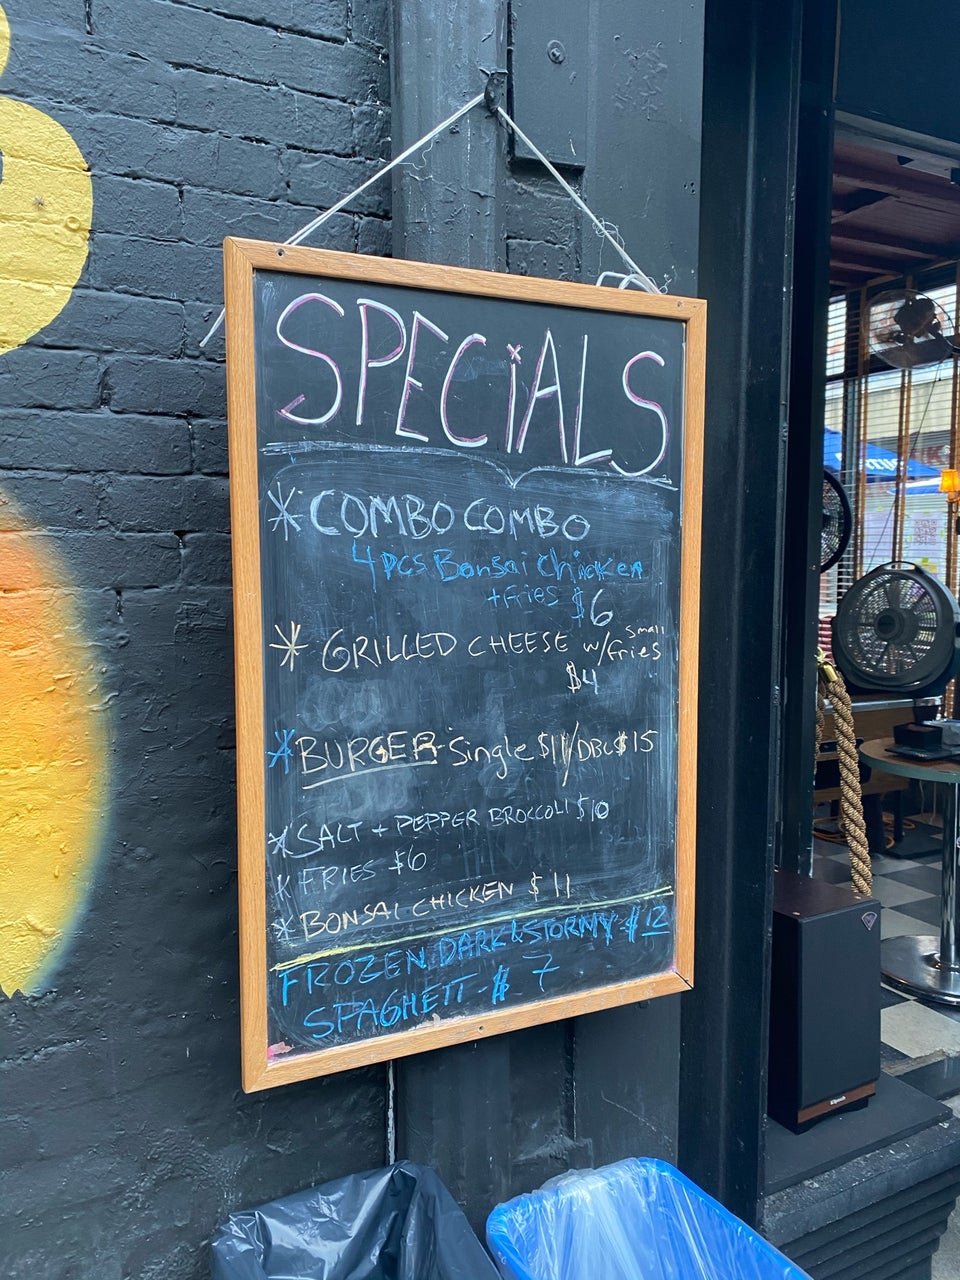 SPECiALS
* COMBO COMBO
4 pcs Bonsai Chicken
+fries $6
* GRILLED CHEESE w/ small fries
$4
* BURGER Single $11/DBL $15
* SALT + PEPPER BROCCOLI $10
* FRIES $6
* BONSAI CHICKEN $11
FROZEN DARK & STORMY $12
SPAGHETT - $7
Klipsch